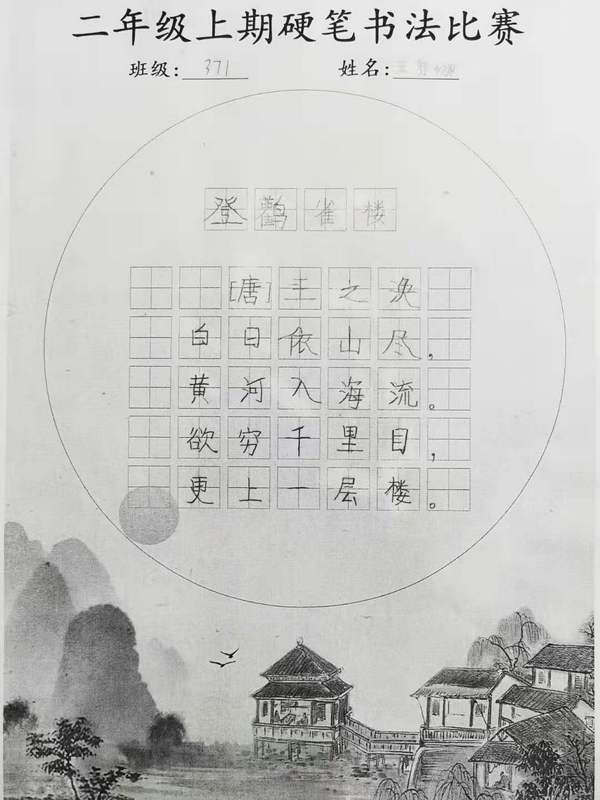 二年级上期硬笔书法比赛
班级: 371 姓名:
登鹳雀楼
[唐]王之涣
白日依山尽,
黄河入海流。
欲穷千里目,
更上一层楼。